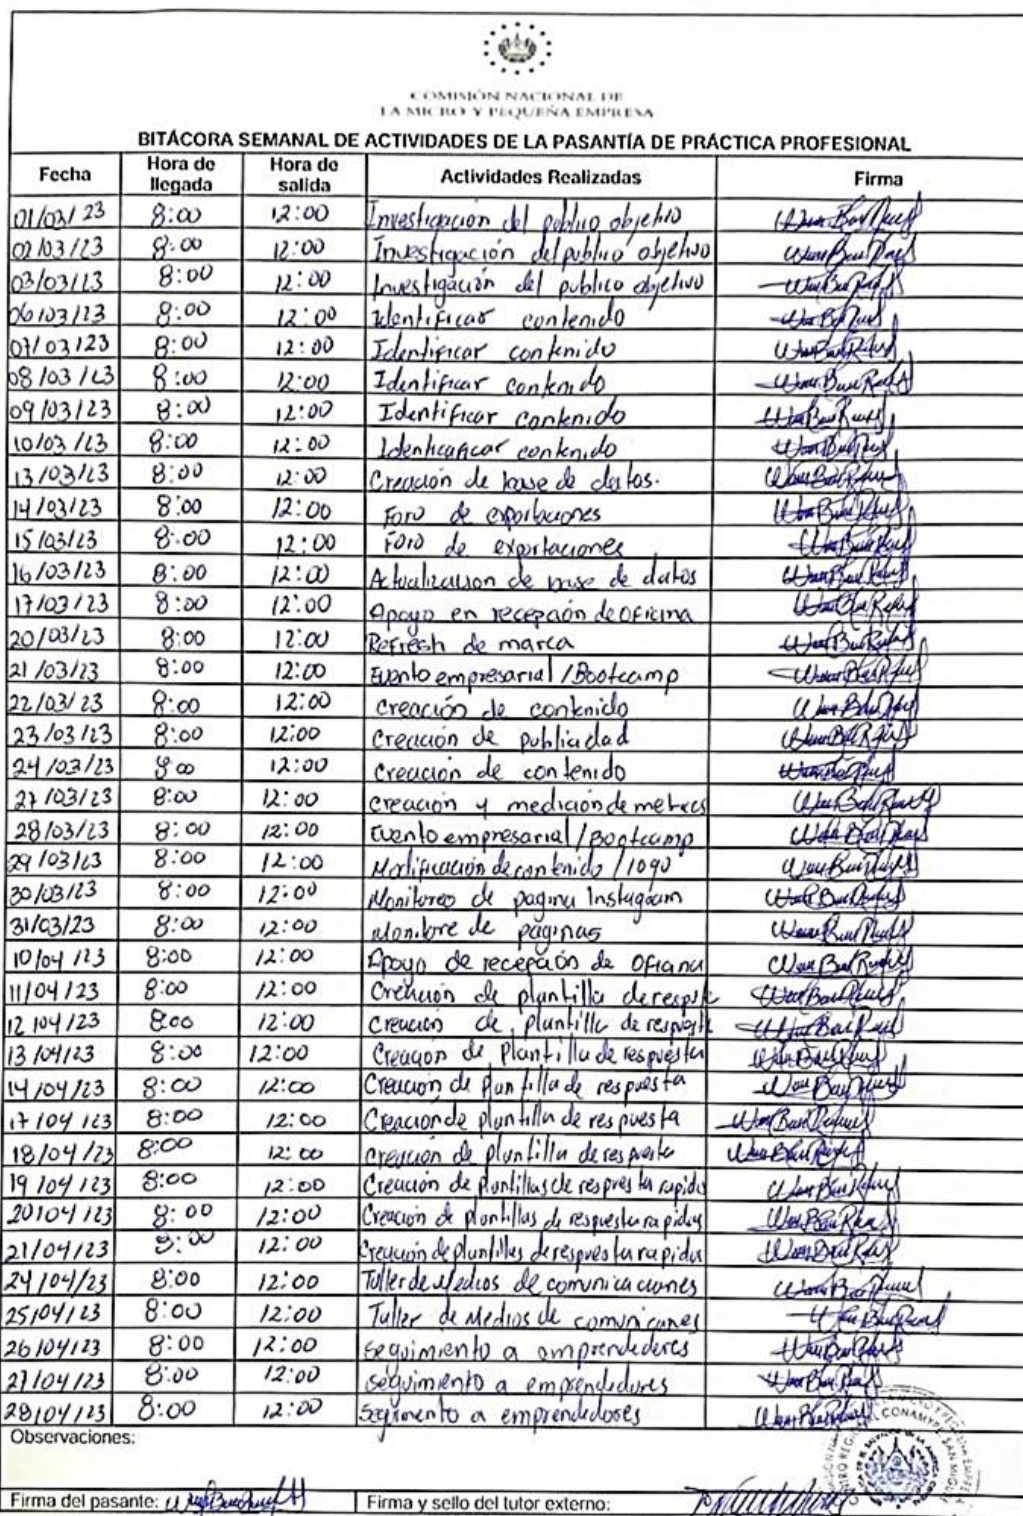 COMISIÓN NACIONAL DE
LA MICRO Y PEQUEÑA EMPRESA
BITÁCORA SEMANAL DE ACTIVIDADES DE LA PASANTÍA DE PRÁCTICA PROFESIONAL
Fecha Hora de llegada Hora de salida Actividades Realizadas Firma
01/03/23 8:00 12:00 Investigación del publico objetivo
02/03/23 8:00 12:00 Investigación del publico objetivo
03/03/23 8:00 12:00 Investigación del publico objetivo
06/03/23 8:00 12:00 Identificar contenido
07/03/23 8:00 12:00 Identificar contenido
08/03/23 8:00 12:00 Identificar contenido
09/03/23 8:00 12:00 Identificar contenido
10/03/23 8:00 12:00 contenido
13/03/23 8:00 12:00 Creación de base de datos.
14/03/23 8:00 12:00 Foro de exportaciones
15/03/23 8:00 12:00 Foro de exportaciones
16/03/23 8:00 12:00 Actualización de base de datos
17/03/23 8:00 12:00 Apoyo en recepción de oficina
20/03/23 8:00 12:00 Refresh de marca
21/03/23 8:00 12:00 Evento empresarial /Bootcamp
22/03/23 8:00 12:00 Creación de contenido
23/03/23 8:00 12:00 Creación de publicidad
24/03/23 8:00 12:00 Creación de contenido
27/03/23 8:00 12:00 Creación y medición de metricas
28/03/23 8:00 12:00 Evento empresarial /Bootcamp
29/03/23 8:00 12:00 Modificación de contenido /logo
30/03/23 8:00 12:00 Monitoreo de pagina Instagram
31/03/23 8:00 12:00 Monitore de paginas
10/04/23 8:00 12:00 Apoyo de recepción de Oficina
11/04/23 8:00 12:00 Creación de plantilla de
12/04/23 8:00 12:00 Creación de plantilla de
13/04/23 8:00 12:00 Creación de plantilla de respuesta
14/04/23 8:00 12:00 Creación de plantilla de respuesta
17/04/23 8:00 12:00 Creación de plantilla de respuesta
18/04/23 8:00 12:00 Creación de plantilla de respuesta
19/04/23 8:00 12:00 Creación de plantillas de respuesta rapida
20/04/23 8:00 12:00 Creación de plantillas de respuesta rapidas
21/04/23 8:00 12:00 Creación de plantillas de respuesta rapida
24/04/23 8:00 12:00 Taller de Medios de comunicaciones
25/04/23 8:00 12:00 Taller de Medios de
26/04/23 8:00 12:00 seguimiento a emprendedores
27/04/23 8:00 12:00 seguimiento a emprendedores
28/04/23 8:00 12:00 a emprendedores
Observaciones:
Firma del pasante: Firma y sello del tutor externo:
CENTRO REGIONAL CONAMYPE SAN MIGUEL